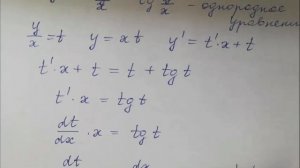 x tg y/x - однородное
уравнени
y/x = t y = xt y' = t'·x + t
t'·x + t = t + tg t
t'·x = tg t
dt/dx · x = tg t
dt dx